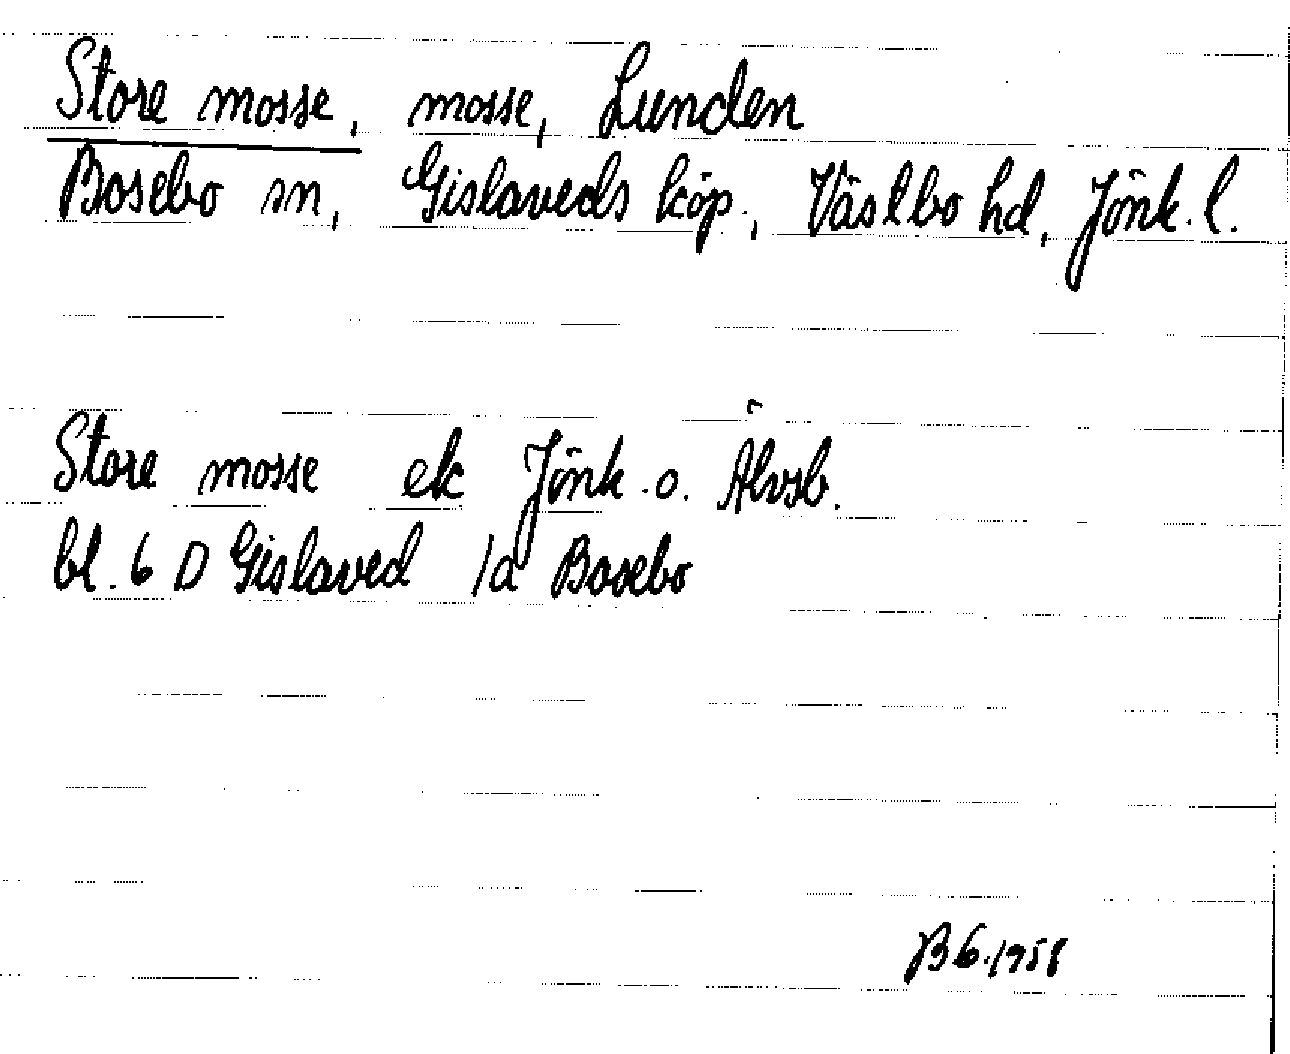 Store mosse, mosse, Lunden
Bosebo sn, Gislaveds köp., Västbo hd, Jönk. l.
Store mosse ek Jönk. o. Älvsb.
bl. 6 D Gislaved /d Bosebo
BG. 1958